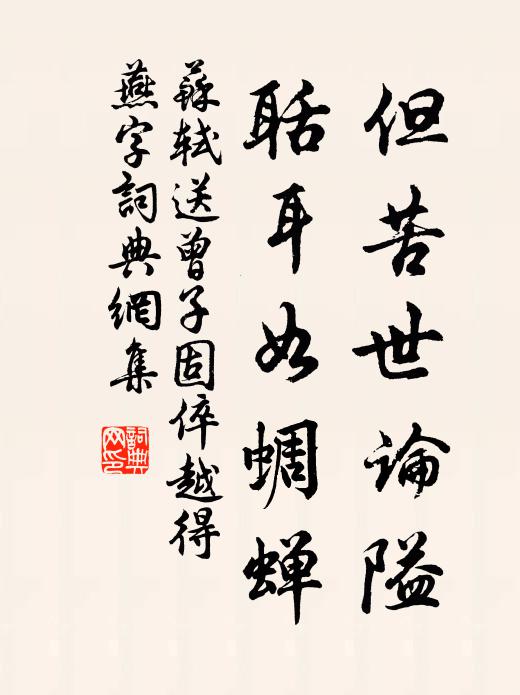 但苦世論隘
聒耳如蜩蝉
蘇轼送曾子固倅越得
燕字詞典網集
詞典
网印